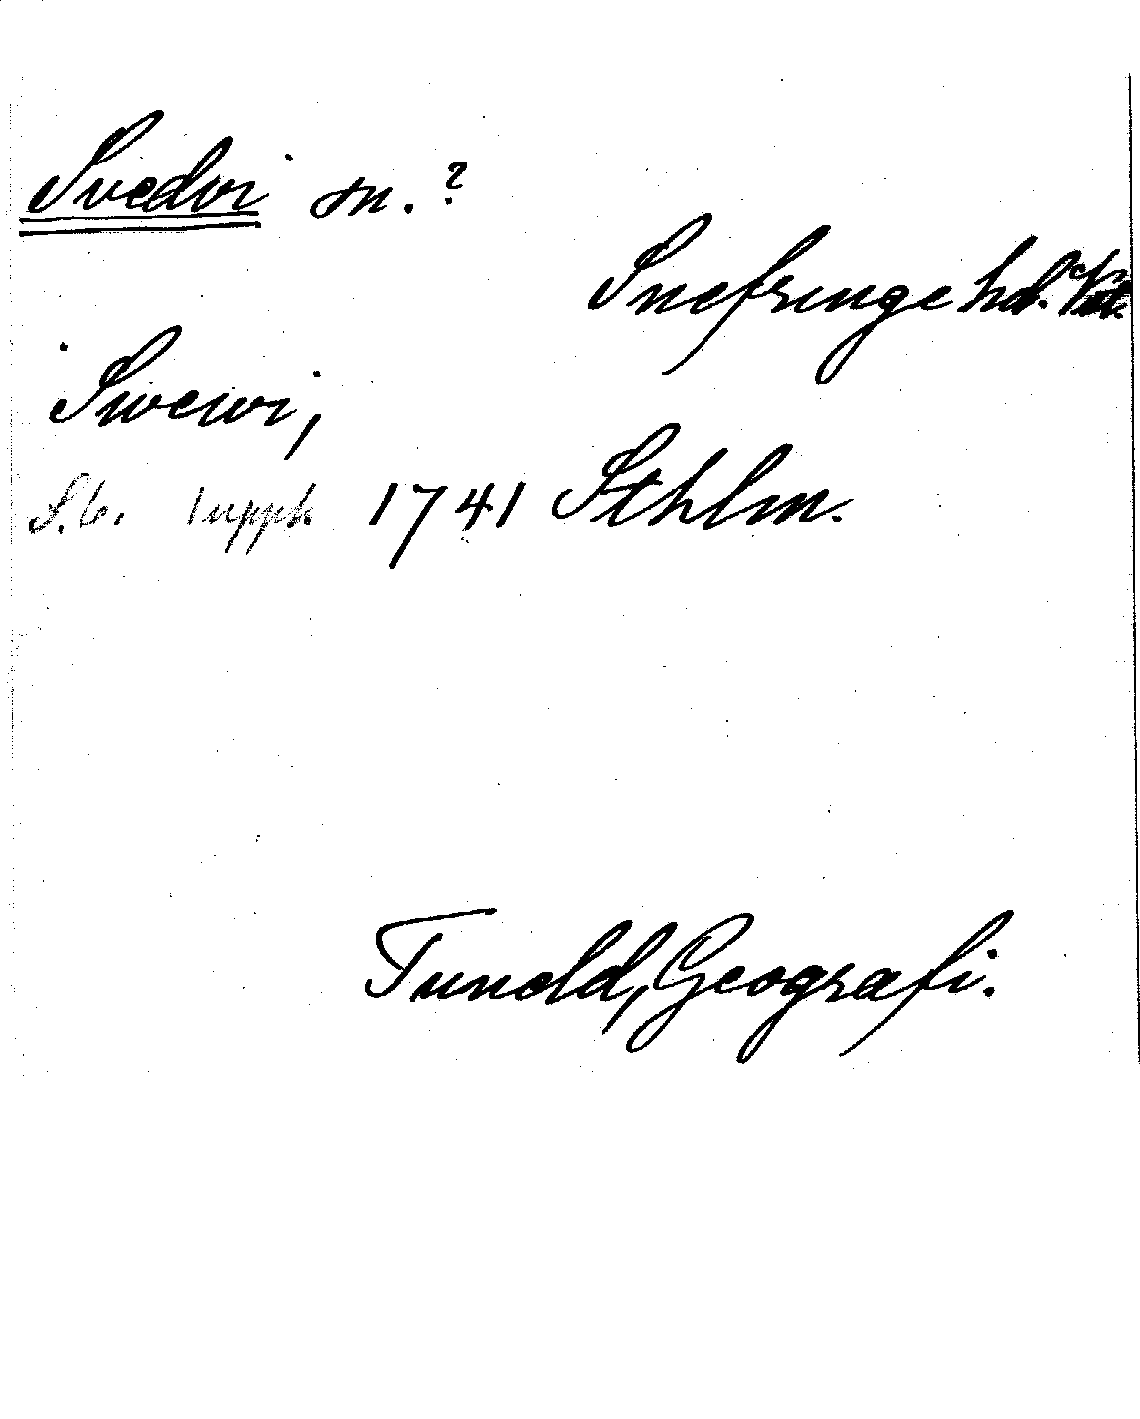 Svedvi sn.?
Snefringe hd. Vstm.
Swewi,
S. 6. 1 uppl. 1741 Sthlm.
Tuneld, Geografi.